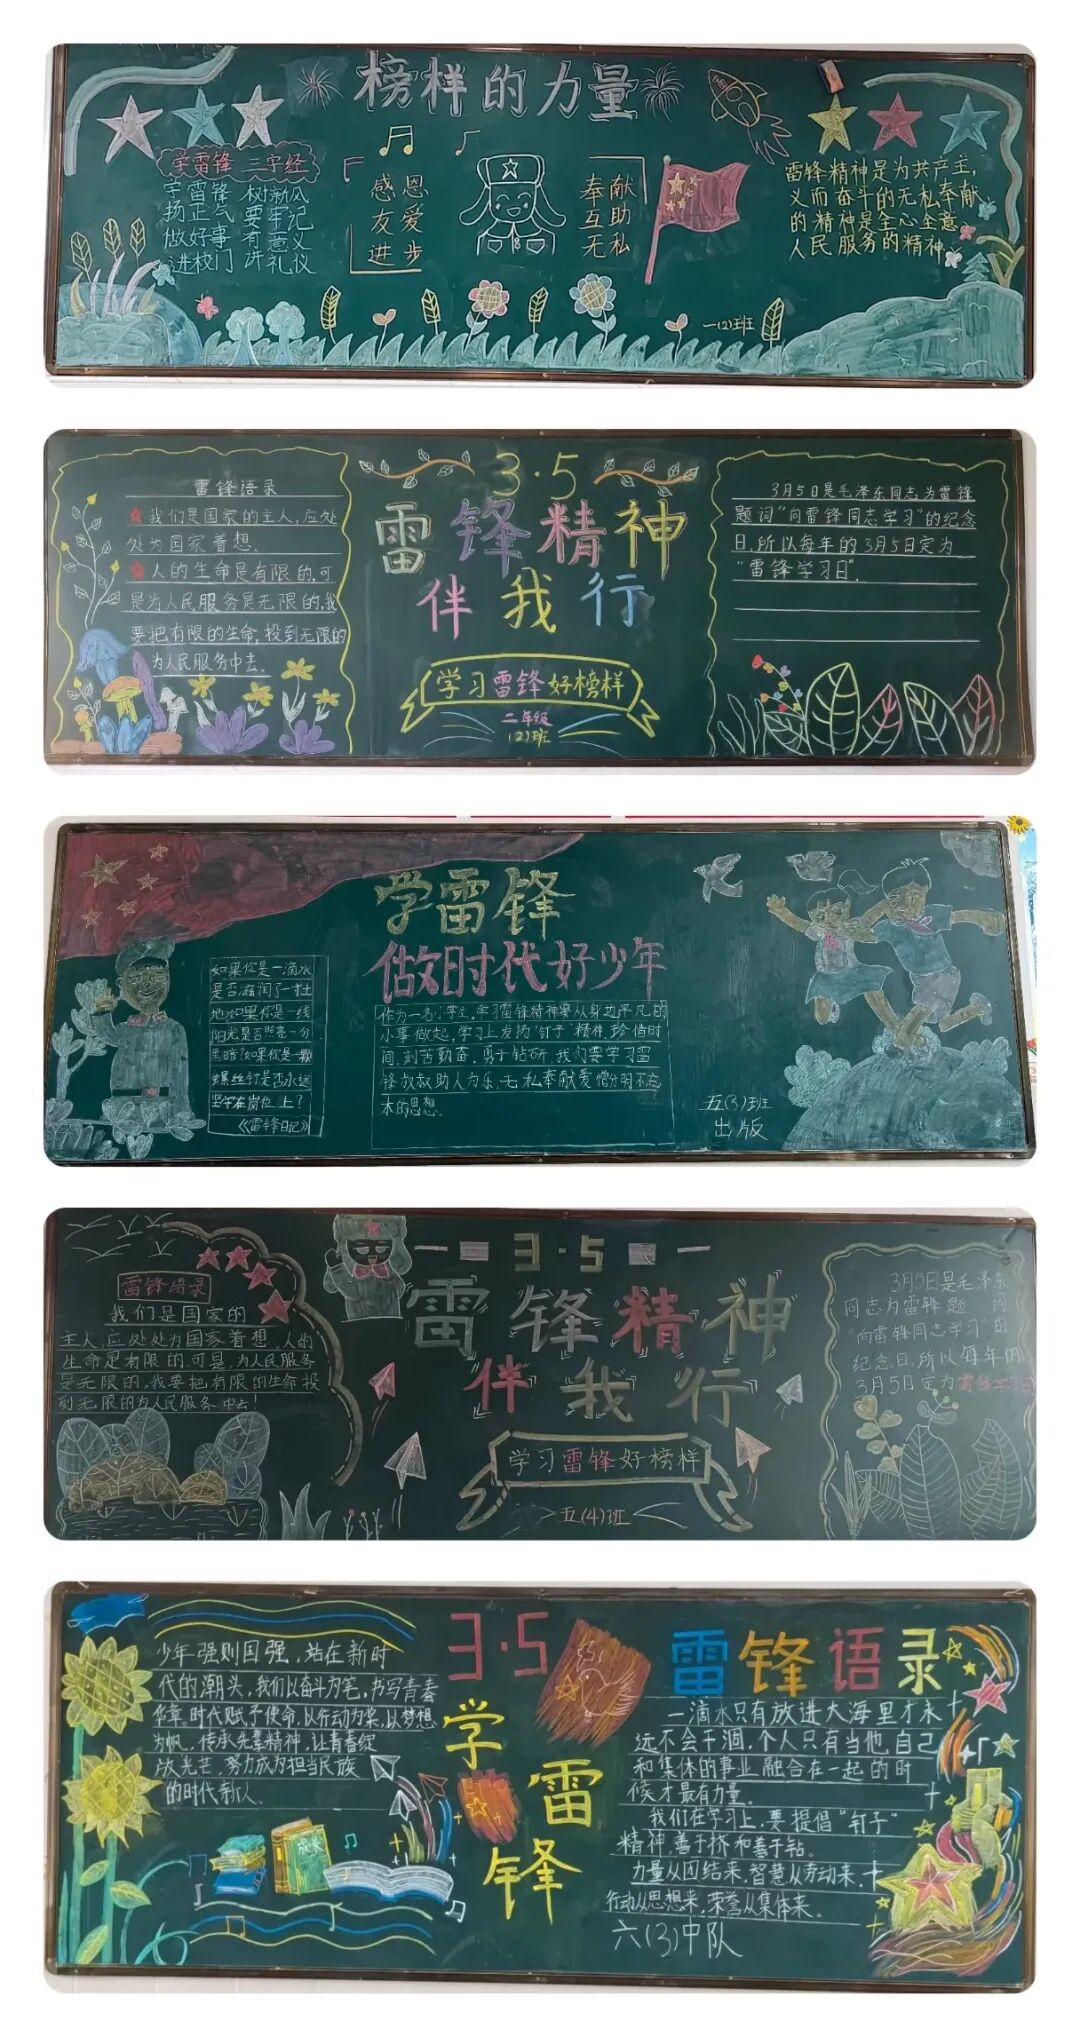 榜样的力量
学雷锋 三字经
学雷锋 树新风
扬正气 要牢记
做好事 有意义
进校门 讲礼仪
感恩
友爱
进步
奉献
互助
无私
雷锋精神是为共产主
义而奋斗的无私奉献
的精神是全心全意
人民服务的精神。
一(2)班
雷锋语录
我们是国家的主人,应处
处为国家着想.
人的生命是有限的,可
是为人民服务是无限的,我
要把有限的生命,投到无限的
为人民服务中去.
3·5
雷锋精神
伴我行
学习雷锋好榜样
二年级
(2)班
3月5日是毛泽东同志为雷锋
题词“向雷锋同志学习”的纪念
日,所以每年的3月5日定为
“雷锋学习日”.
学雷锋
做时代好少年
如果你是一滴水
是否滋润了一寸土
地如果你是一线
阳光是否照亮一分
黑暗?如果你是一颗
螺丝钉是否永远
坚守在岗位上?
《雷锋日记》
作为一名小学生,学习雷锋精神要从身边平凡的
小事做起,学习上发扬“钉子”精神,珍惜时
间,刻苦勤奋,勇于钻研,我们要学习雷
锋叔叔助人为乐,无私奉献爱憎分明不忘
本的思想.
五(3)班
出版
3·5
雷锋精神
伴我行
学习雷锋好榜样
五(4)班
雷锋语录
我们是国家的
主人,应处处为国家着想,人的
生命是有限的可是,为人民服务
是无限的,我要把有限的生命投
到无限的为人民服务中去!
3月5日是毛泽东
同志为雷锋题词
“向雷锋同志学习”的
纪念日,所以每年的
3月5日定为
少年强则国强,站在新时
代的潮头,我们以奋斗为笔,书写青春
华章。时代赋予使命,以行动为桨,以梦想
为帆,传承先辈精神,让青春绽
放光芒,努力成为担当民族
的时代新人.
3·5
学
雷
锋
雷锋语录
一滴水只有放进大海里才永
远不会干涸,个人只有当他自己
和集体的事业融合在一起的时
候才最有力量。
我们在学习上,要提倡“钉子”
精神,善于挤和善于钻。
力量从团结来,智慧从劳动来,
行动从思想来,荣誉从集体来.
六(3)中队